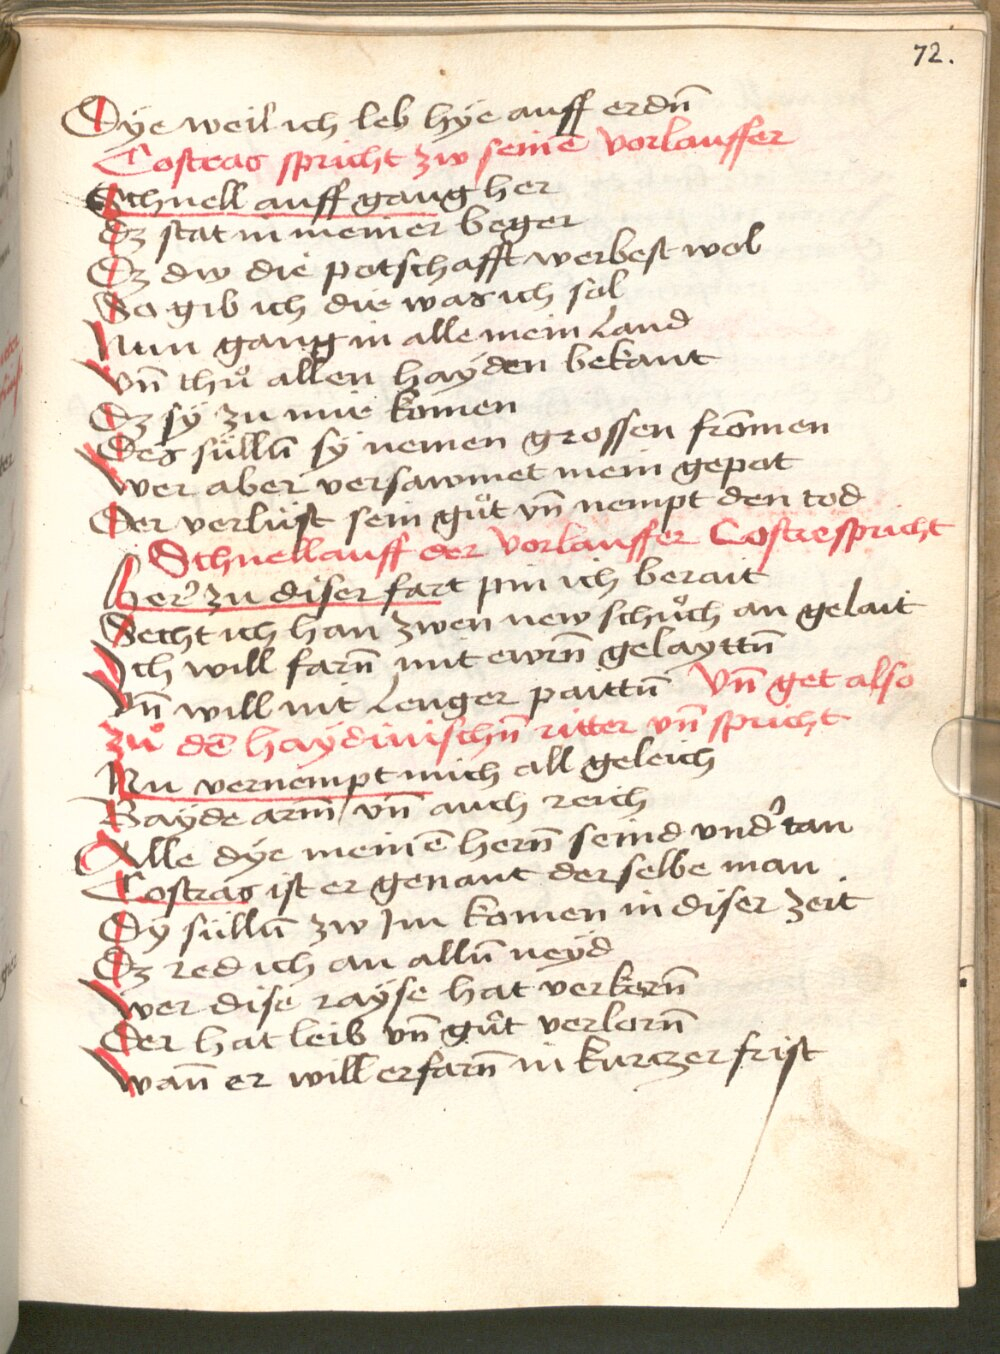 72.
Dye weil ich leb hye auff erdn̄
Costras spricht zw seinē vorlauffer
Schnell auff gang her
Dz stat in meiner beger
Dz dw die potschafft werbest wol
So gib ich die was ich sol
Nun gang in alle mein Land
Vn̄ thuͦ allen hayden bekant
Dz sy zu mir komen
Des sülln̄ sy nemen grossen frōmen
Wer aber versawmet mein gepot
Der verlüst sein guͦt vn̄ nempt den tod
Schnellauff der vorlauffer Costre spricht
Her̄ zu diser fart pin ich berait
Secht ich han zwen new schuͦch an gelait
Ich will farn̄ mit ewrn̄ gelayttn̄
Vn̄ will nit Lenger paittn̄ Vn̄ get also
Zuͦ dē haydinischn̄ ritter vn̄ spricht
Nu vernempt mich all geleich
Bayde arm̄ / vn̄ auch reich
Alle dye meinē hern̄ seind vnd̓tan
Costras ist er genant der selbe man
Dy sülln̄ zw Im komen in diser zeit
Dz red ich an alln̄ neyd
Wer dise rayse hat verkern̄
Der hat leib vn̄ guͦt verlorn̄
Wan̄ er will erfarn̄ in kurczer frist